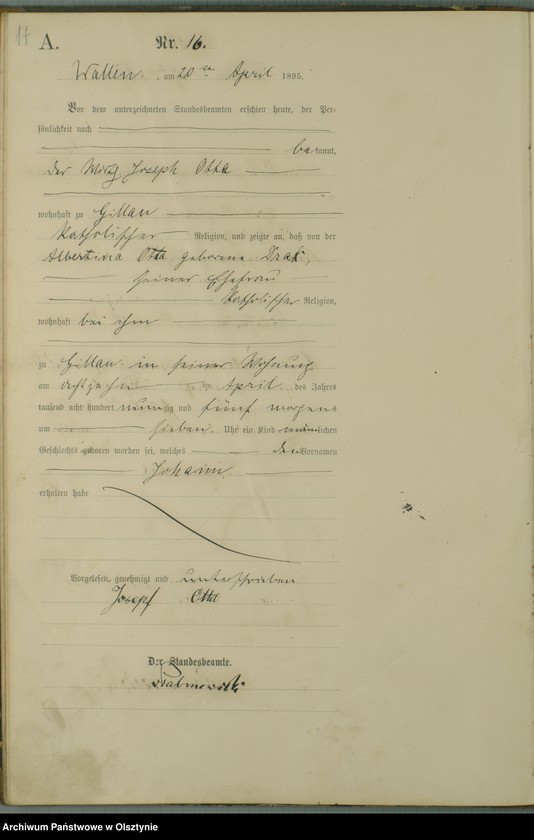 17
A.
Nr. 16.
Wallen, am 20ten April 1895.
Vor dem unterzeichneten Standesbeamten erschien heute, der Per-
sönlichkeit nach
bekannt,
der Wirth Joseph Otta
wohnhaft zu Gillau
katholischer Religion, und zeigte an, daß von der
Albertina Otta geborene
seiner Ehefrau
katholischer Religion,
wohnhaft bei ihm
zu Gillau in seiner Wohnung
am achtzehnten April des Jahres
tausend acht hundert neunzig und fünf morgens
um sieben Uhr ein Kind männlichen
Geschlechts geboren worden sei, welches den Vornamen
Johann
erhalten habe
Vorgelesen, genehmigt und unterschrieben
Josepf Otta
Der Standesbeamte.
Archiwum Państwowe w Olsztynie